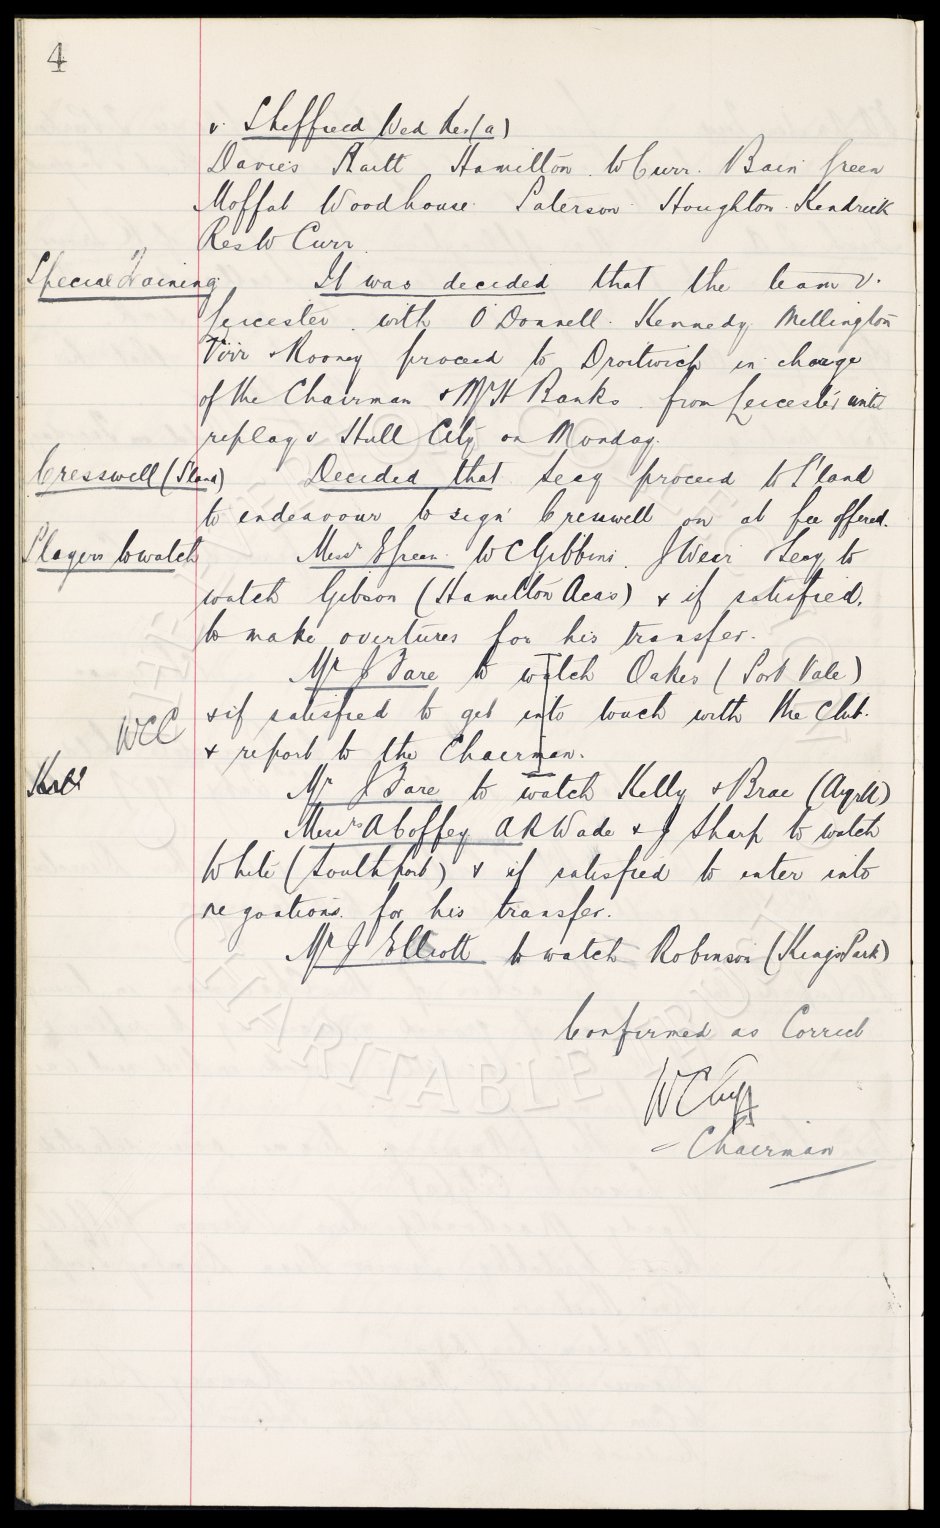 4
v. Sheffield Wed Res (a)
Davies Raitt Hamilton. W Curr. Bain Green
Moffat Woodhouse Paterson Houghton. Kendrick
Res W Curr.
Special Training
It was decided that the team v.
Leicester. with O'Donnell. Kennedy. Mellington
Virr & Rooney proceed to Droitwich in charge
of the Chairman & Mr H Banks. from Leicester until
replay v Hull City on Monday.
Cresswell (S'land)
Decided that Seay proceed to S'land
to endeavour to sign Cresswell on at fee offered.
Players to watch
Messrs E Green. W C Gibbins. J Wear & Seay to
watch Gibson (Hamilton Acas) & if satisfied,
to make overtures for his transfer.
Mr J Fare to watch Oakes (Port Vale)
& if satisfied to get into touch with the club.
WCC
& report to the Chairman.
Mr J Fare to watch Kelly & Brae (Ayr U)
Messrs A Coffey A R Wade & J Sharp to watch
White (Southport) & if satisfied to enter into
negoations. for his transfer.
Mr J Elliott to watch Robinson (Kings Park)
Confirmed as Correct
W C Cuff
Chairman
EVERTON COLLECTION
CHARITABLE TRUST